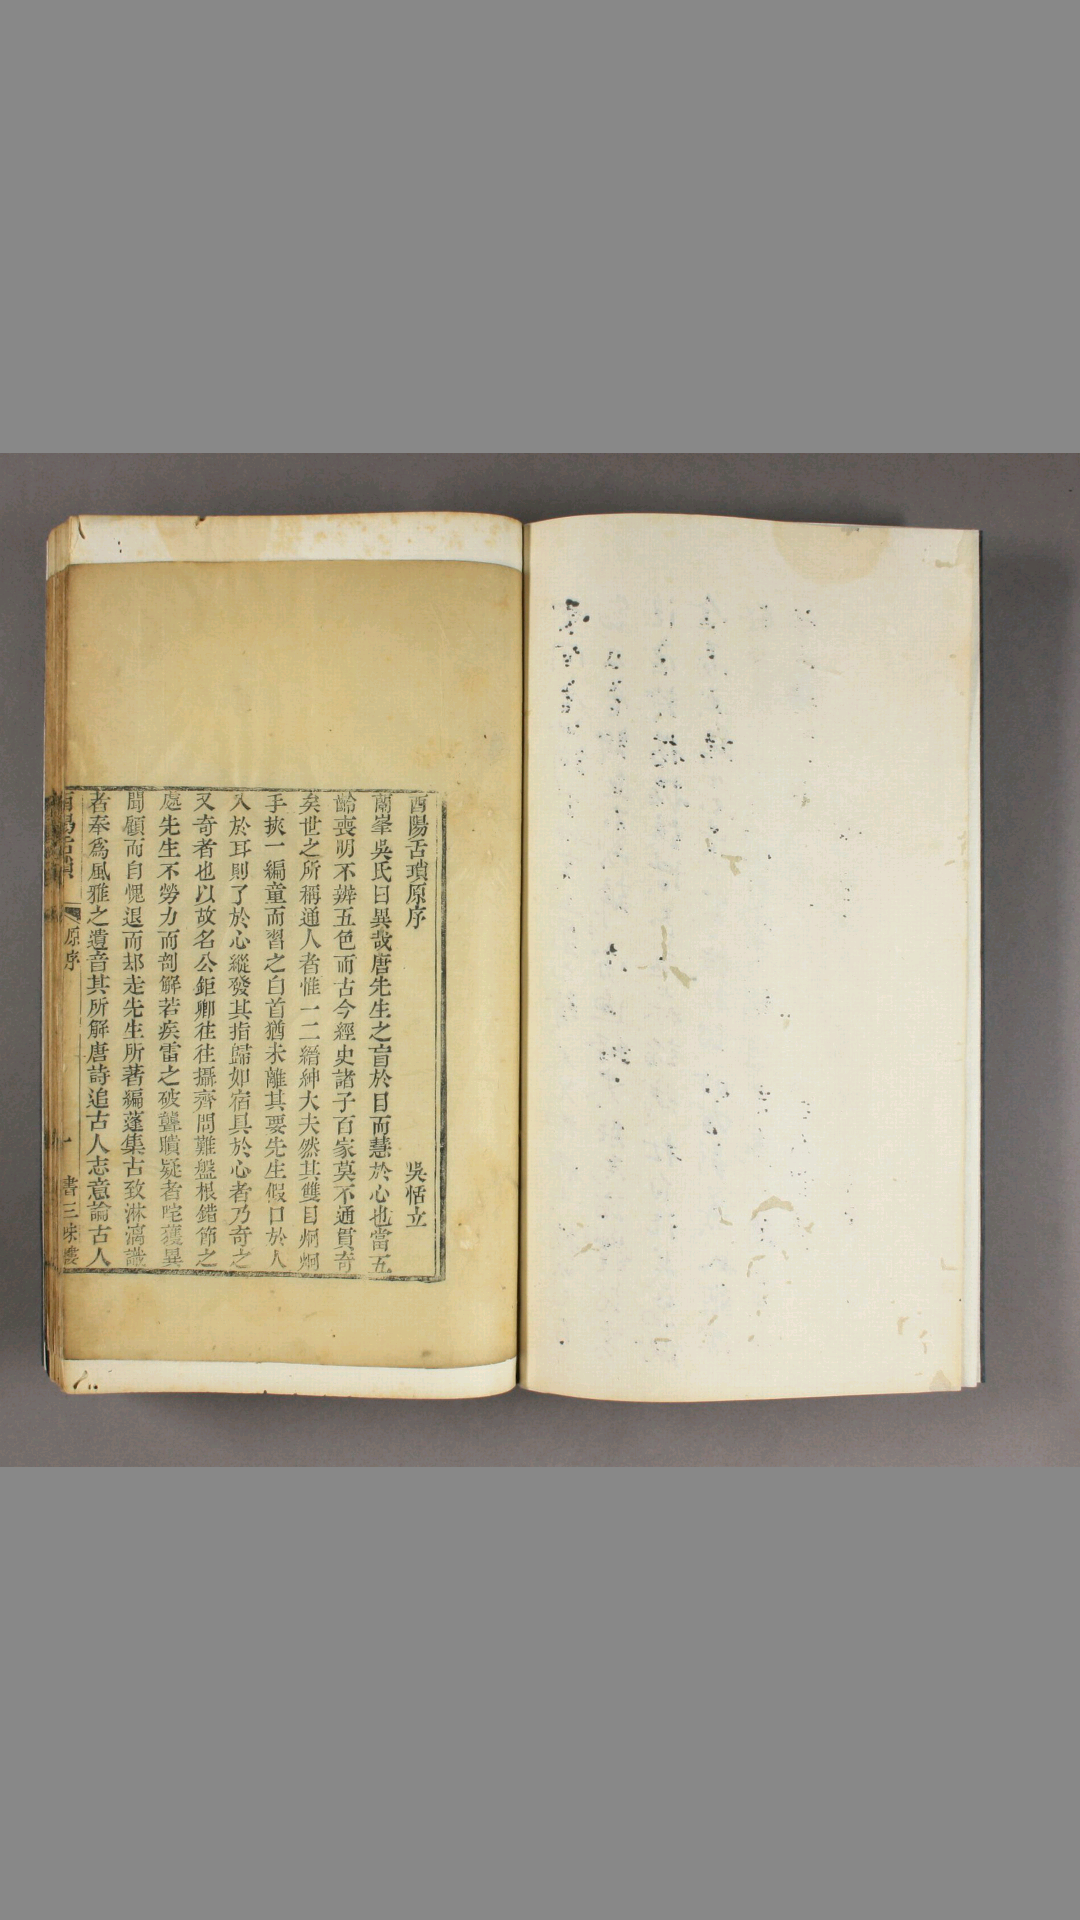 酉陽舌瑣原序 吳恬立
蘭峯吳氏曰異哉唐先生之盲於目而慧於心也當五
齡喪明不辨五色而古今經史諸子百家莫不通貫奇
矣世之所稱通人者惟一二縉紳大夫然其雙目炯炯
手挾一編童而習之白首猶未離其要先生假口於人
入於耳則了於心縱發其指歸如宿具於心者乃奇之
又奇者也以故名公鉅卿往往攝齊問難盤根錯節之
處先生不勞力而剖解若疾雷之破聾聵疑者咤獲異
聞頑而自愧退而却走先生所著編蓬集古致淋漓識
者奉為風雅之遺音其所解唐詩追古人志意論古人
酉陽舌瑣 原序 一 書三味樓